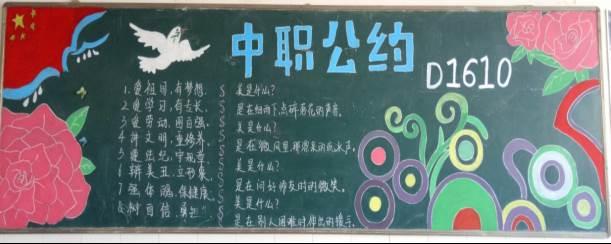 中职公约
D1610
1.爱祖国,有梦想.
2.爱学习,有专长.
3.爱劳动,图自强.
4.讲文明,重修养.
5.遵法纪,守规章.
6.辨美丑,立形象.
7.强体魄,保健康.
8.树自信,勇担
美是什么?
是在细雨下,点碎落花的声音.
美是什么?
是在微风里,
美是什么?
是在问好师友时的微笑.
美是什么?
是在别人困难时伸出的援手.